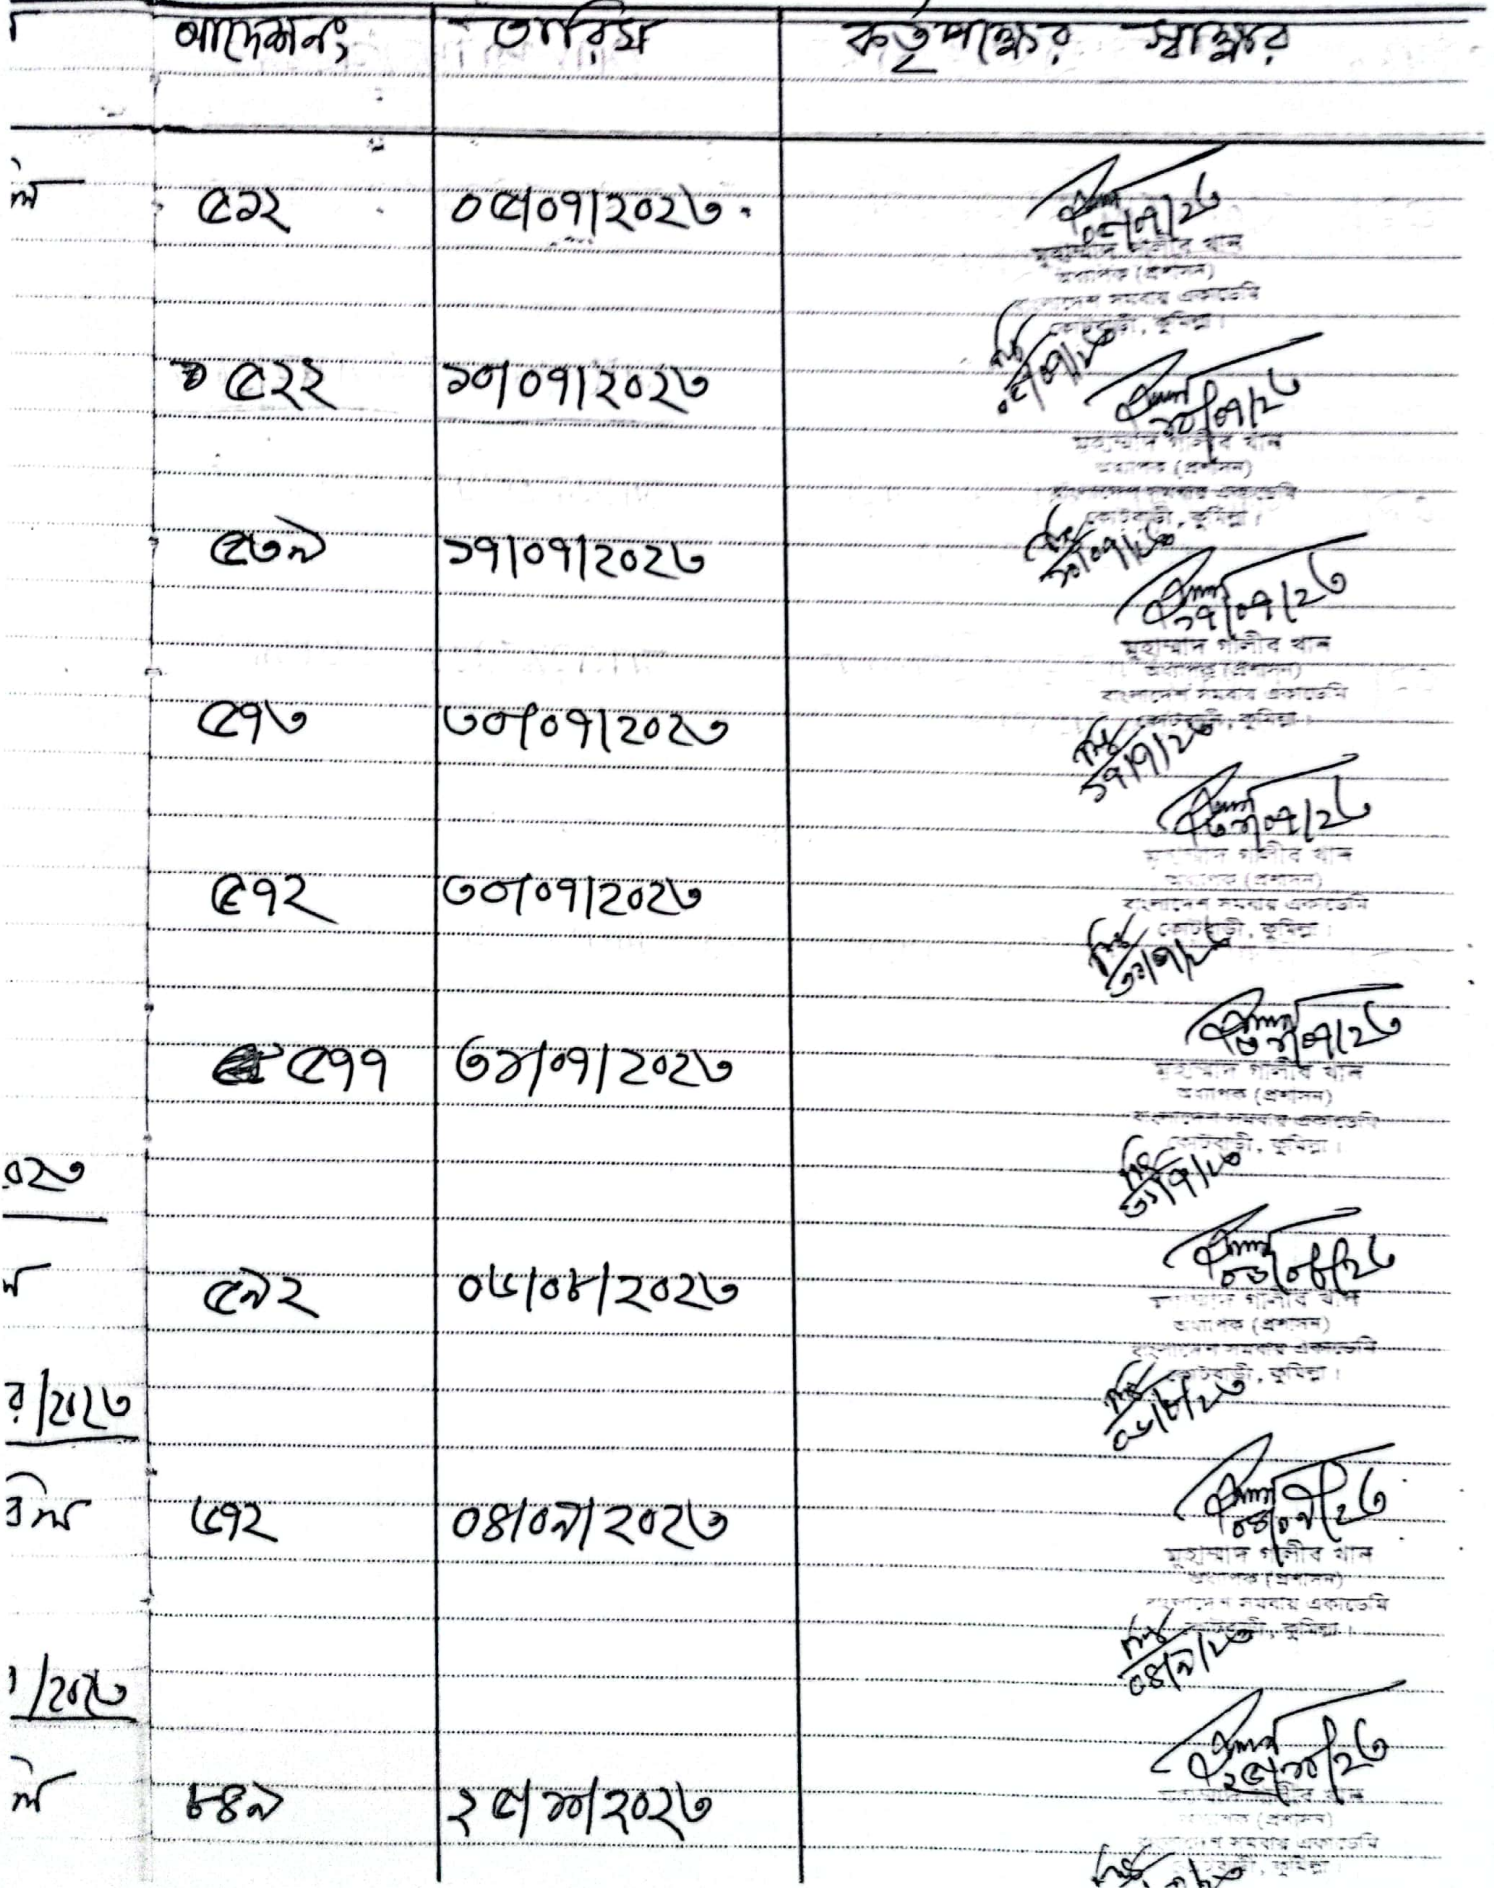 আদেশনং তারিখ কর্তৃপক্ষের স্বাক্ষর
৫১২ ০৫/০৭/২০২৩
০৫/০৭/২৩
মুহাম্মাদ গালীব খান
অধ্যাপক (প্রশাসন)
বাংলাদেশ সমবায় একাডেমি
কোটবাড়ী, কুমিল্লা।
৫২২ ১০/০৭/২০২৩
১০/০৭/২৩
মুহাম্মাদ গালীব খান
অধ্যাপক (প্রশাসন)
বাংলাদেশ সমবায় একাডেমি
কোটবাড়ী, কুমিল্লা।
৫৩৯ ১৭/০৭/২০২৩
১৭/০৭/২৩
মুহাম্মাদ গালীব খান
অধ্যাপক (প্রশাসন)
বাংলাদেশ সমবায় একাডেমি
কোটবাড়ী, কুমিল্লা।
৫৭৩ ৩০/০৭/২০২৩
১৭/৭/২৩
মুহাম্মাদ গালীব খান
অধ্যাপক (প্রশাসন)
বাংলাদেশ সমবায় একাডেমি
কোটবাড়ী, কুমিল্লা।
৫৭২ ৩০/০৭/২০২৩
মুহাম্মাদ গালীব খান
অধ্যাপক (প্রশাসন)
বাংলাদেশ সমবায় একাডেমি
কোটবাড়ী, কুমিল্লা।
৫৭৭ ৩১/০৭/২০২৩
০২৩
৫৯২ ০৬/০৮/২০২৩
০৬/০৮/২৩
মুহাম্মাদ গালীব খান
অধ্যাপক (প্রশাসন)
বাংলাদেশ সমবায় একাডেমি
কোটবাড়ী, কুমিল্লা।
০৬/৮/২৩
র/২০২৩
৬৭২ ০৪/০৯/২০২৩
০৪/০৯/২৩
মুহাম্মাদ গালীব খান
অধ্যাপক (প্রশাসন)
বাংলাদেশ সমবায় একাডেমি
কোটবাড়ী, কুমিল্লা।
০৪/৯/২৩
/২০২৩
৮৪৯ ২৫/১০/২০২৩
২৫/১০/২৩
মুহাম্মাদ গালীব খান
অধ্যাপক (প্রশাসন)
বাংলাদেশ সমবায় একাডেমি
কোটবাড়ী, কুমিল্লা।